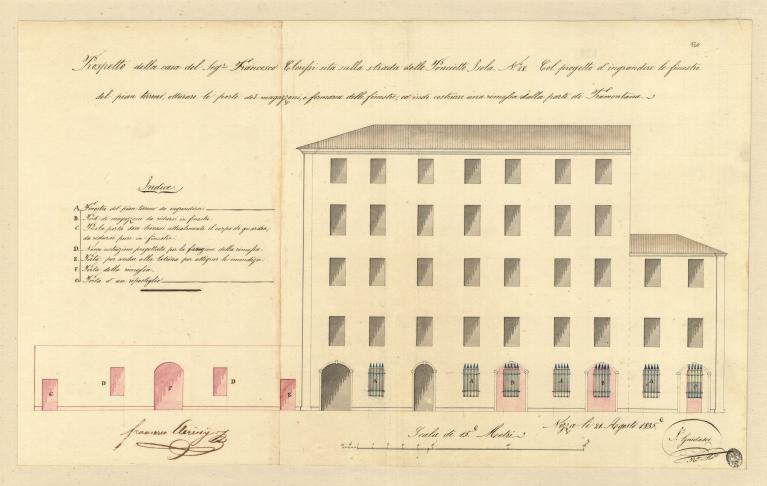 Prospetto della casa del Sig.r Francesco Clerissi sita sulla strada delle Ponciette, Isola N.° 28. Col progetto d'ingrandire le finestre
del pian terreno, otturare le porte dei magazzeni, e formarne delle finestre, ed indi costrurre una rimessa dalla parte di Tramontana.
Indice
A. Finestre del pian terreno da ingrandirsi
B. Porte di magazzeni da ridursi in finestre.
C. Porta dove trovasi attualmente il corpo di guardia,
da ridursi pure in finestra.
D. Nuova costruzione progettata per la formazione della rimessa.
E. Porta per andar alla latrina per attigner le immondizie.
F. Porta della rimessa.
G. Porta d'un ripostiglio
G D F D E A A B A B A C
francesco Clerissy
Scala di 15. Metri.
Nizza li 21 Agosto 1835.